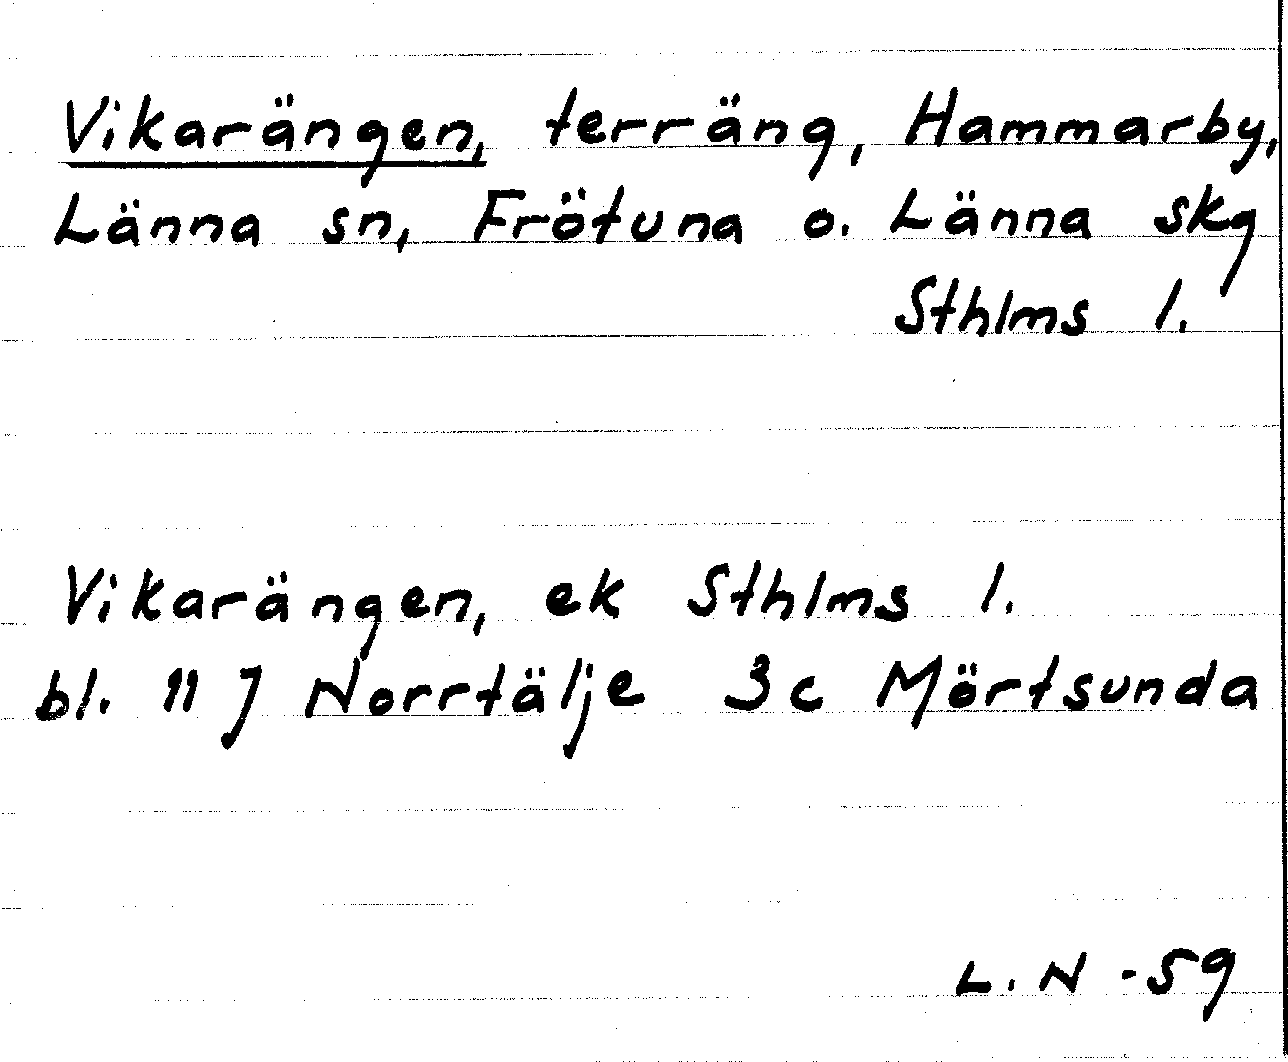 Vikarängen, terräng, Hammarby,
Länna sn, Frötuna o. Länna skg
Sthlms l.
Vikarängen, ek Sthlms l.
bl. 11 J Norrtälje 3c Mörtsunda
L. N -59